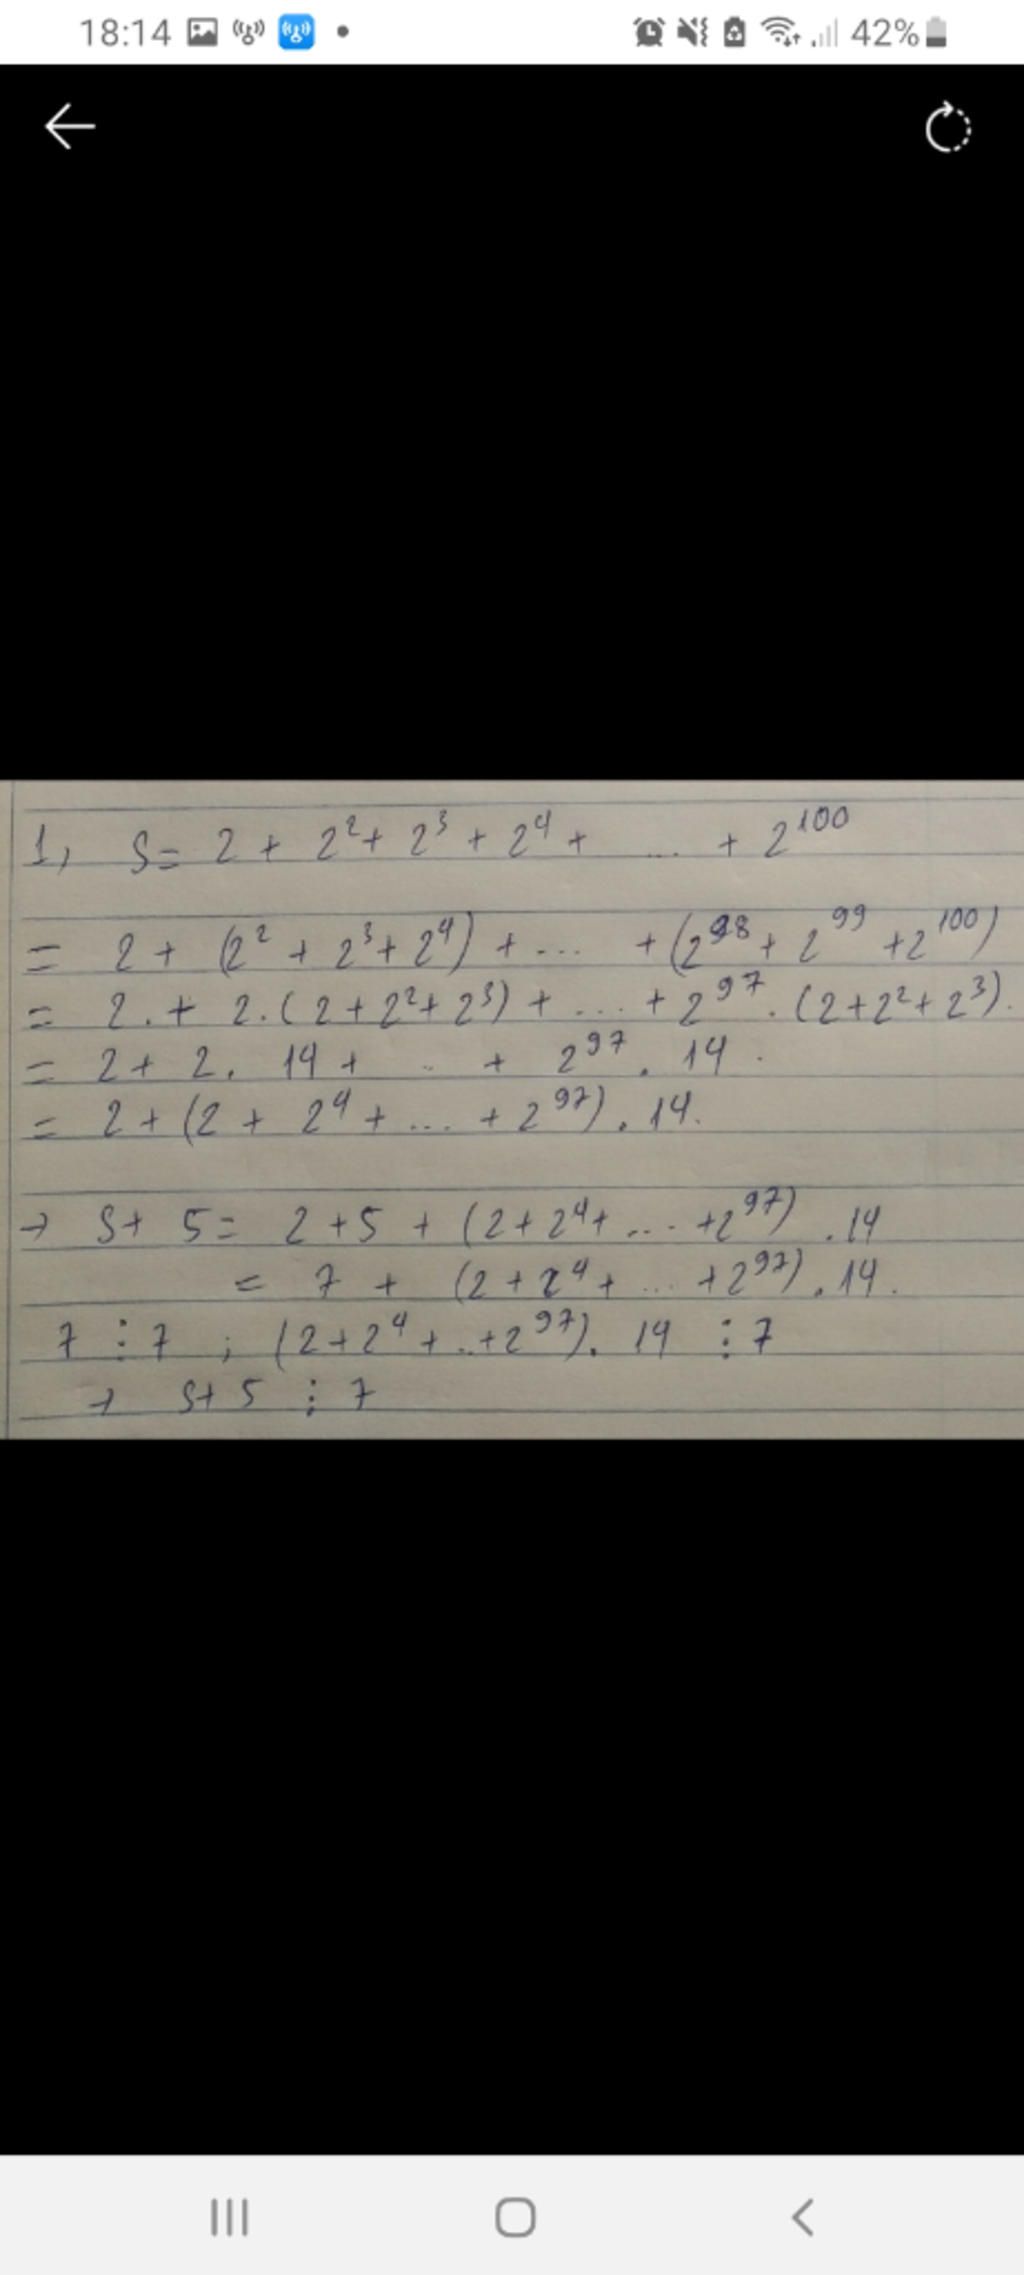 18:14 42%
1, S= 2 + 2² + 2³ + 2⁴ + .... + 2¹⁰⁰
= 2 + (2² + 2³ + 2⁴) + ... + (2⁹⁸ + 2⁹⁹ + 2¹⁰⁰)
= 2. + 2.(2 + 2² + 2³) + ... + 2⁹⁷.(2+2²+2³).
= 2 + 2. 14 + .. + 2⁹⁷. 14.
= 2 + (2 + 2⁴ + ... + 2⁹⁷). 14.
→ S + 5 = 2 + 5 + (2 + 2⁴ + ... + 2⁹⁷) .14
= 7 + (2 + 2⁴ + ... + 2⁹⁷). 14.
7 ⋮ 7 ; (2 + 2⁴ + .. + 2⁹⁷). 14 ⋮ 7
→ S + 5 ⋮ 7